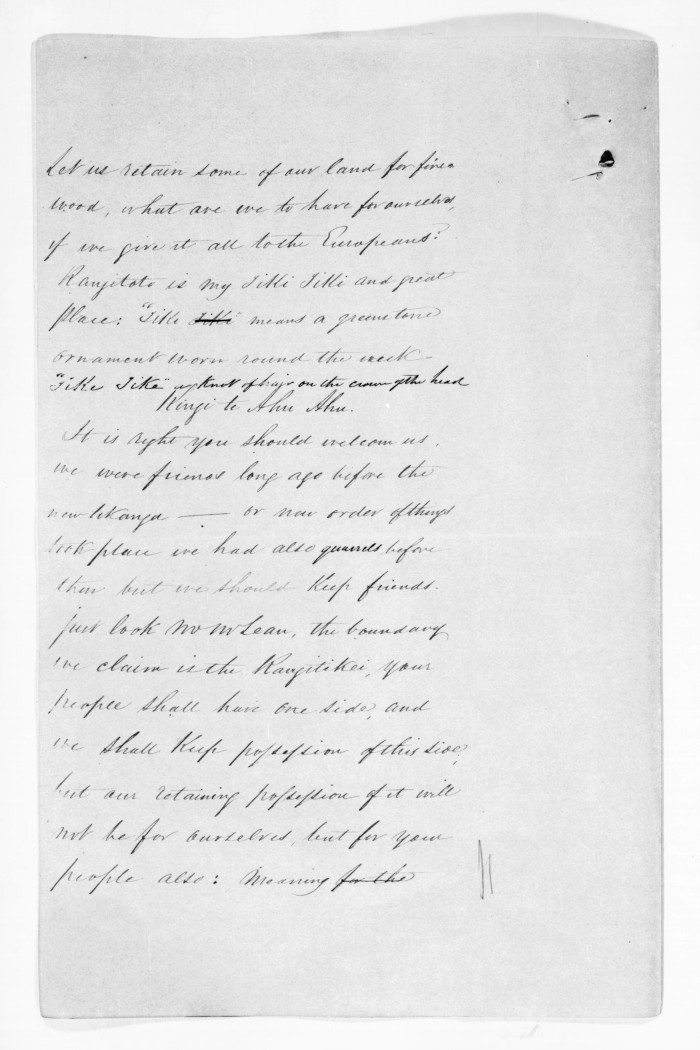 Let us retain some of our land for fire
wood, what are we to have for ourselves,
if we give it all to the Europeans?
Rangitoto is my Tiki Tiki and great
place: "Tiki Tiki" means a greenstone
ornament worn round the neck -
"Tike Tike" a Knot of hair on the crown of the head
Kingi te Ahu Ahu.
It is right you should welcom us,
we were friends long ago before the
new tikanga — or new order of things
took place we had also quarrels before
then but we should Keep friends.
just look Mr McLean, the boundary
we claim is the Rangitikei, your
people shall have one side, and
we shall Keep possession of this side,
but our retaining possession of it will
not be for ourselves, but for your
people also: Meaning for the